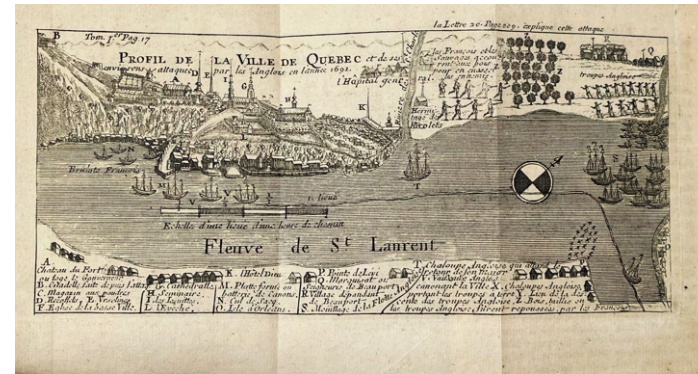 la Lettre 20. Page 209. explique cette attaque
Tom. 1.er Pag. 17
PROFIL DE LA VILLE DE QUEBEC et de ses
environs attaquée par les Anglois en l'année 1691.
l'Hôpital gen.
les François et les
Sauvages accou
rent aux bois
pour en
troupes Angloises
Hermi
tage de
Recolets
Brulots François
1. lieue
Echelle d'une lieue d'une heure de chemin
Fleuve de S.t Laurent
A.
Chateau du Fort
ou loge le Gouverneur
B. Citadelle faite depuis l'attaq.
C. Magazin aux poudres
D. Recollets, E. Urselines
F. Eglise de la basse Ville.
G. Cathedralle
H. Seminaire.
I. des Jesuittes.
L. Evêché.
K. l'Hôtel Dieu
M. Platte forme ou
batterie de Canons.
N. Cul de Sacq.
O. Isle d'Orleans.
P. Pointe de Levi
Q. Marquisat ou
Seigneurie de Beauport
R. Village dépendant
de Beauport.
S. Mouillage de la Flotte Angl.
T. Chaloupe Angloise qui attend le
retour de son major
V. Vaisseaux Anglois
canonant la Ville X. Chaloupes Angloises
portant les troupes a terre Y. Lieu de la des-
cente des troupes Angloises Z. Bois, taillis ou
les troupes Angloises furent repoussées par les François